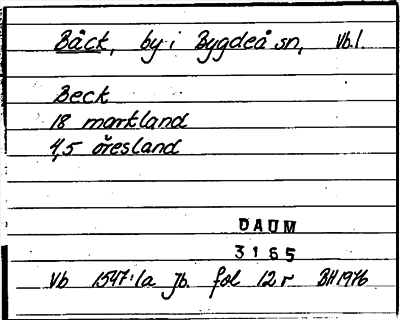 Bäck, by i Bygdeå sn, Vb.l.
Beck
18 markland
4,5 öresland
DAUM
3165
Vb 1547:1a Jb. fol 12r BH 1976